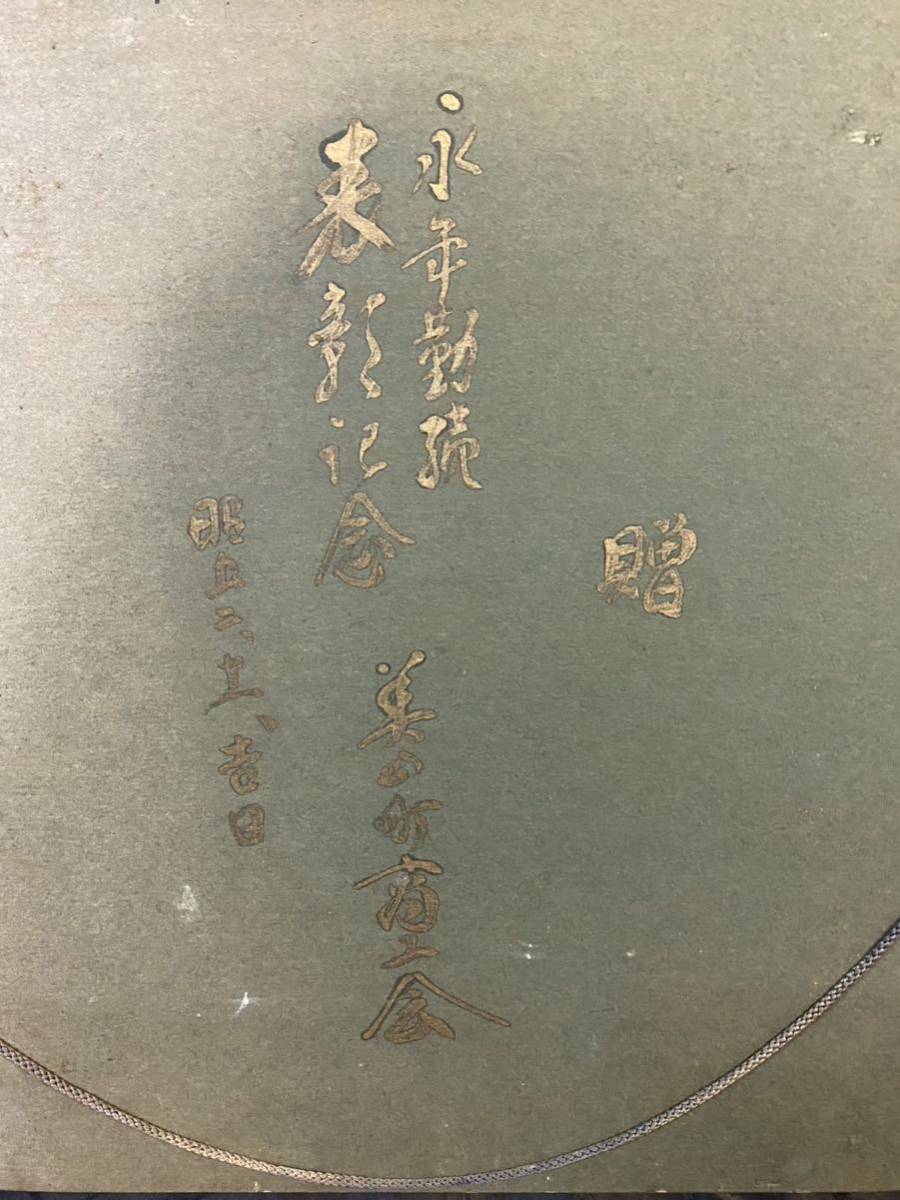 贈
永年勤続
表彰記念
美山町商工会
昭五二、十一、吉日